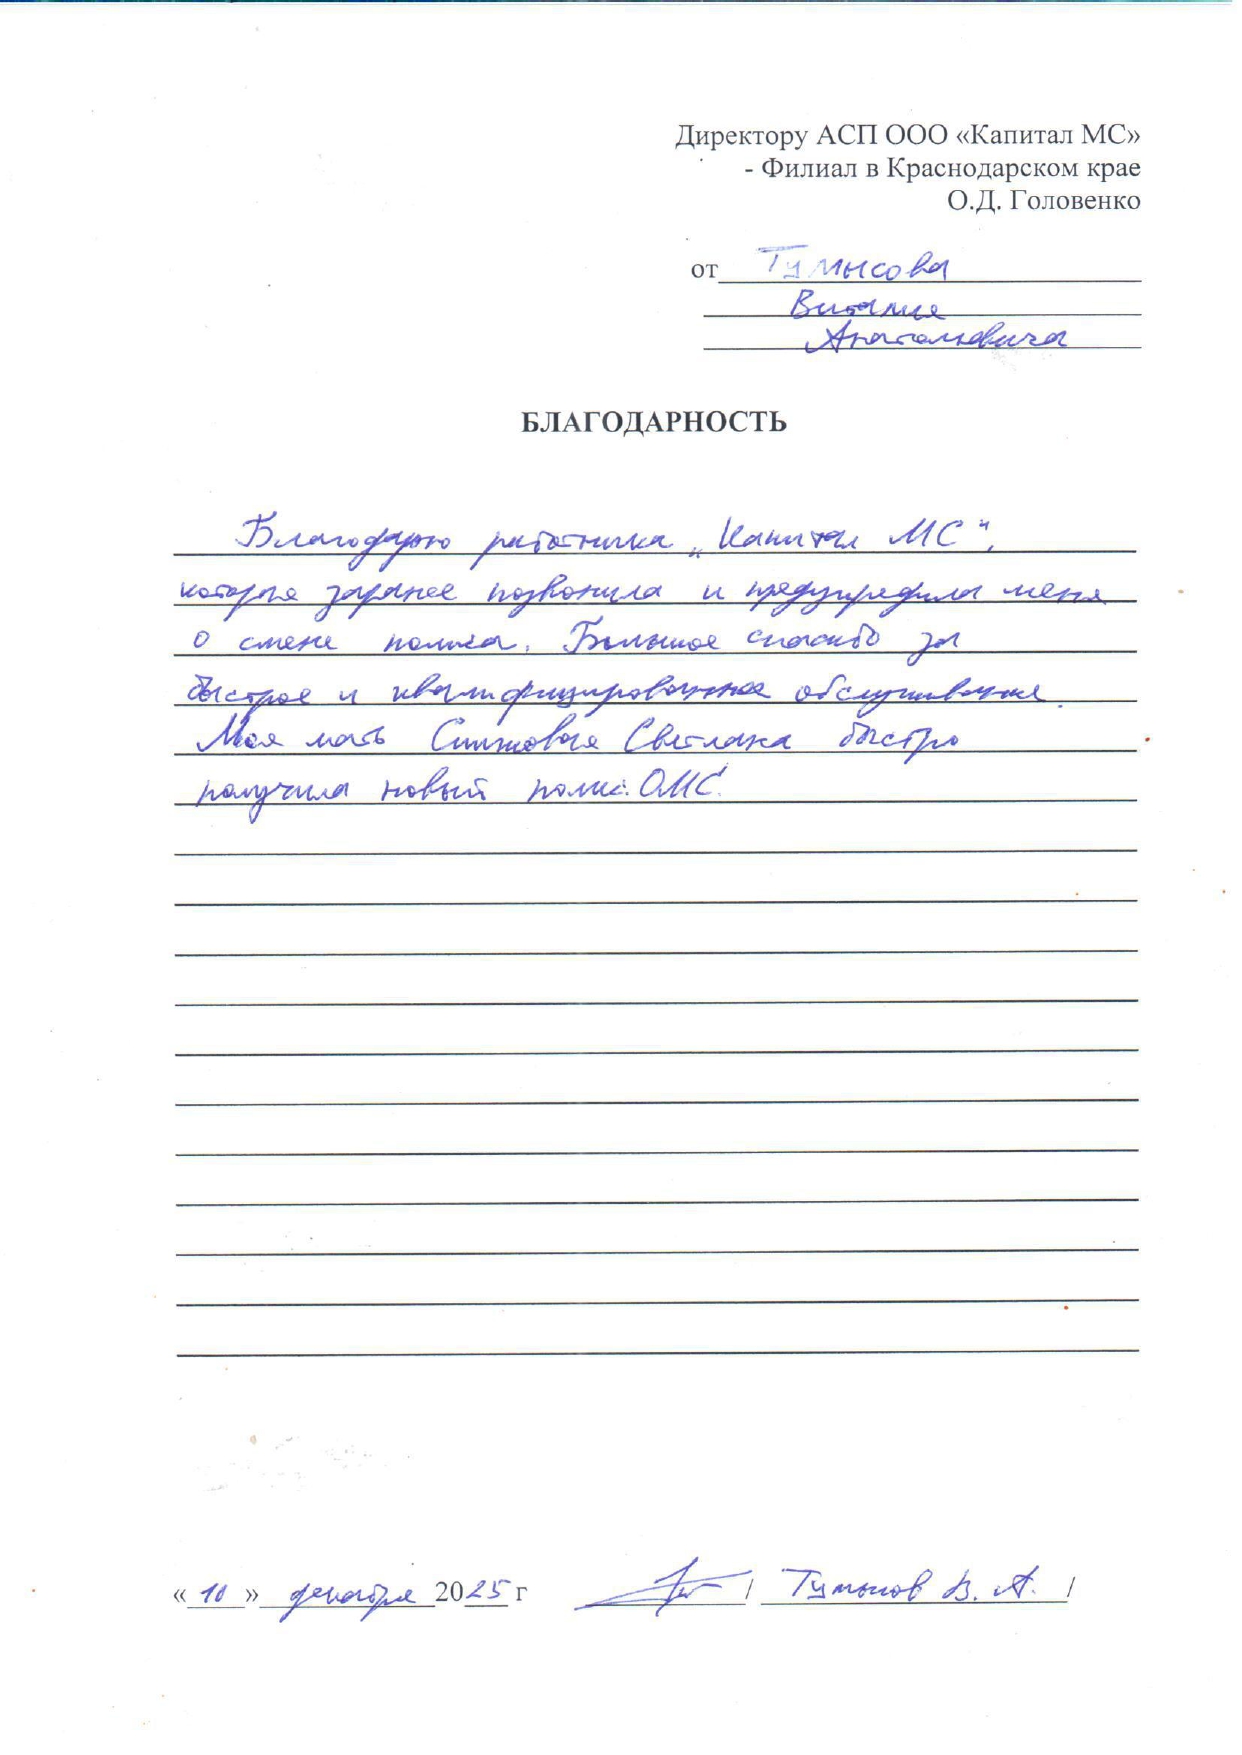 Директору АСП ООО «Капитал МС»
- Филиал в Краснодарском крае
О.Д. Головенко
от Тумысова
Виталия
Анатольевича
БЛАГОДАРНОСТЬ
Благодарю работника „Капитал МС",
которая заранее позвонила и предупредила меня
о смене полиса. Большое спасибо за
быстрое и квалифицированное обслуживание.
Моя мать Светлана быстро
получила новый полис ОМС.
«10» декабря 2025 г / Тумысов В. А. /